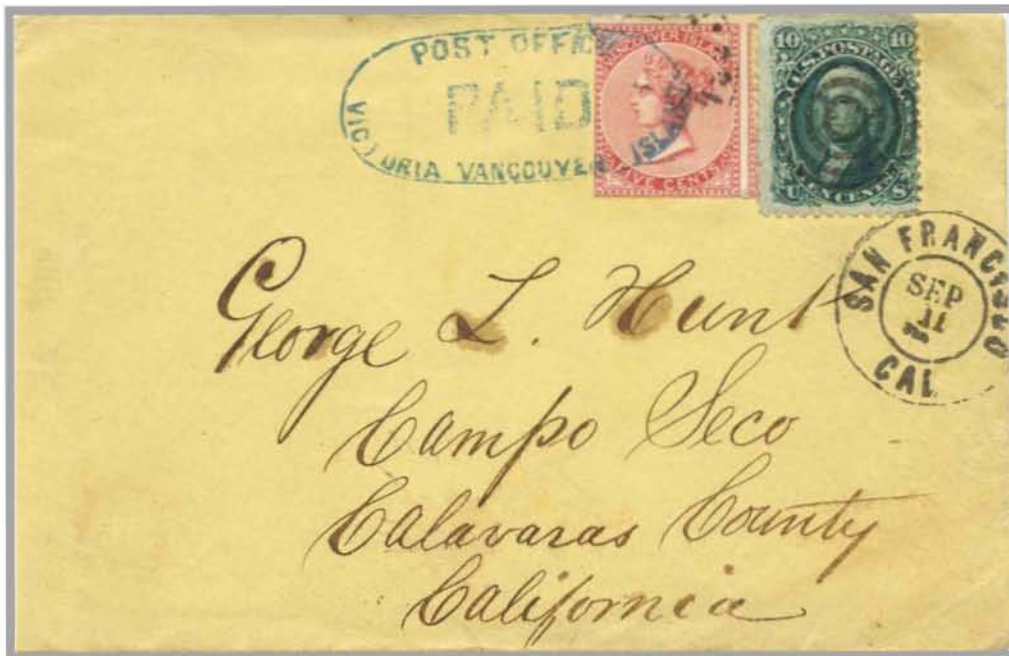 POST OFFICE
PAID
VICTORIA VANCOUVER ISLAND
VANCOUVER ISLAND
FIVE CENTS
10 10
U.S. POSTAGE
TEN CENTS
U S
SAN FRANCISCO
SEP
11
CAL
George L. Hunt
Campo Seco
Calavaras County
California